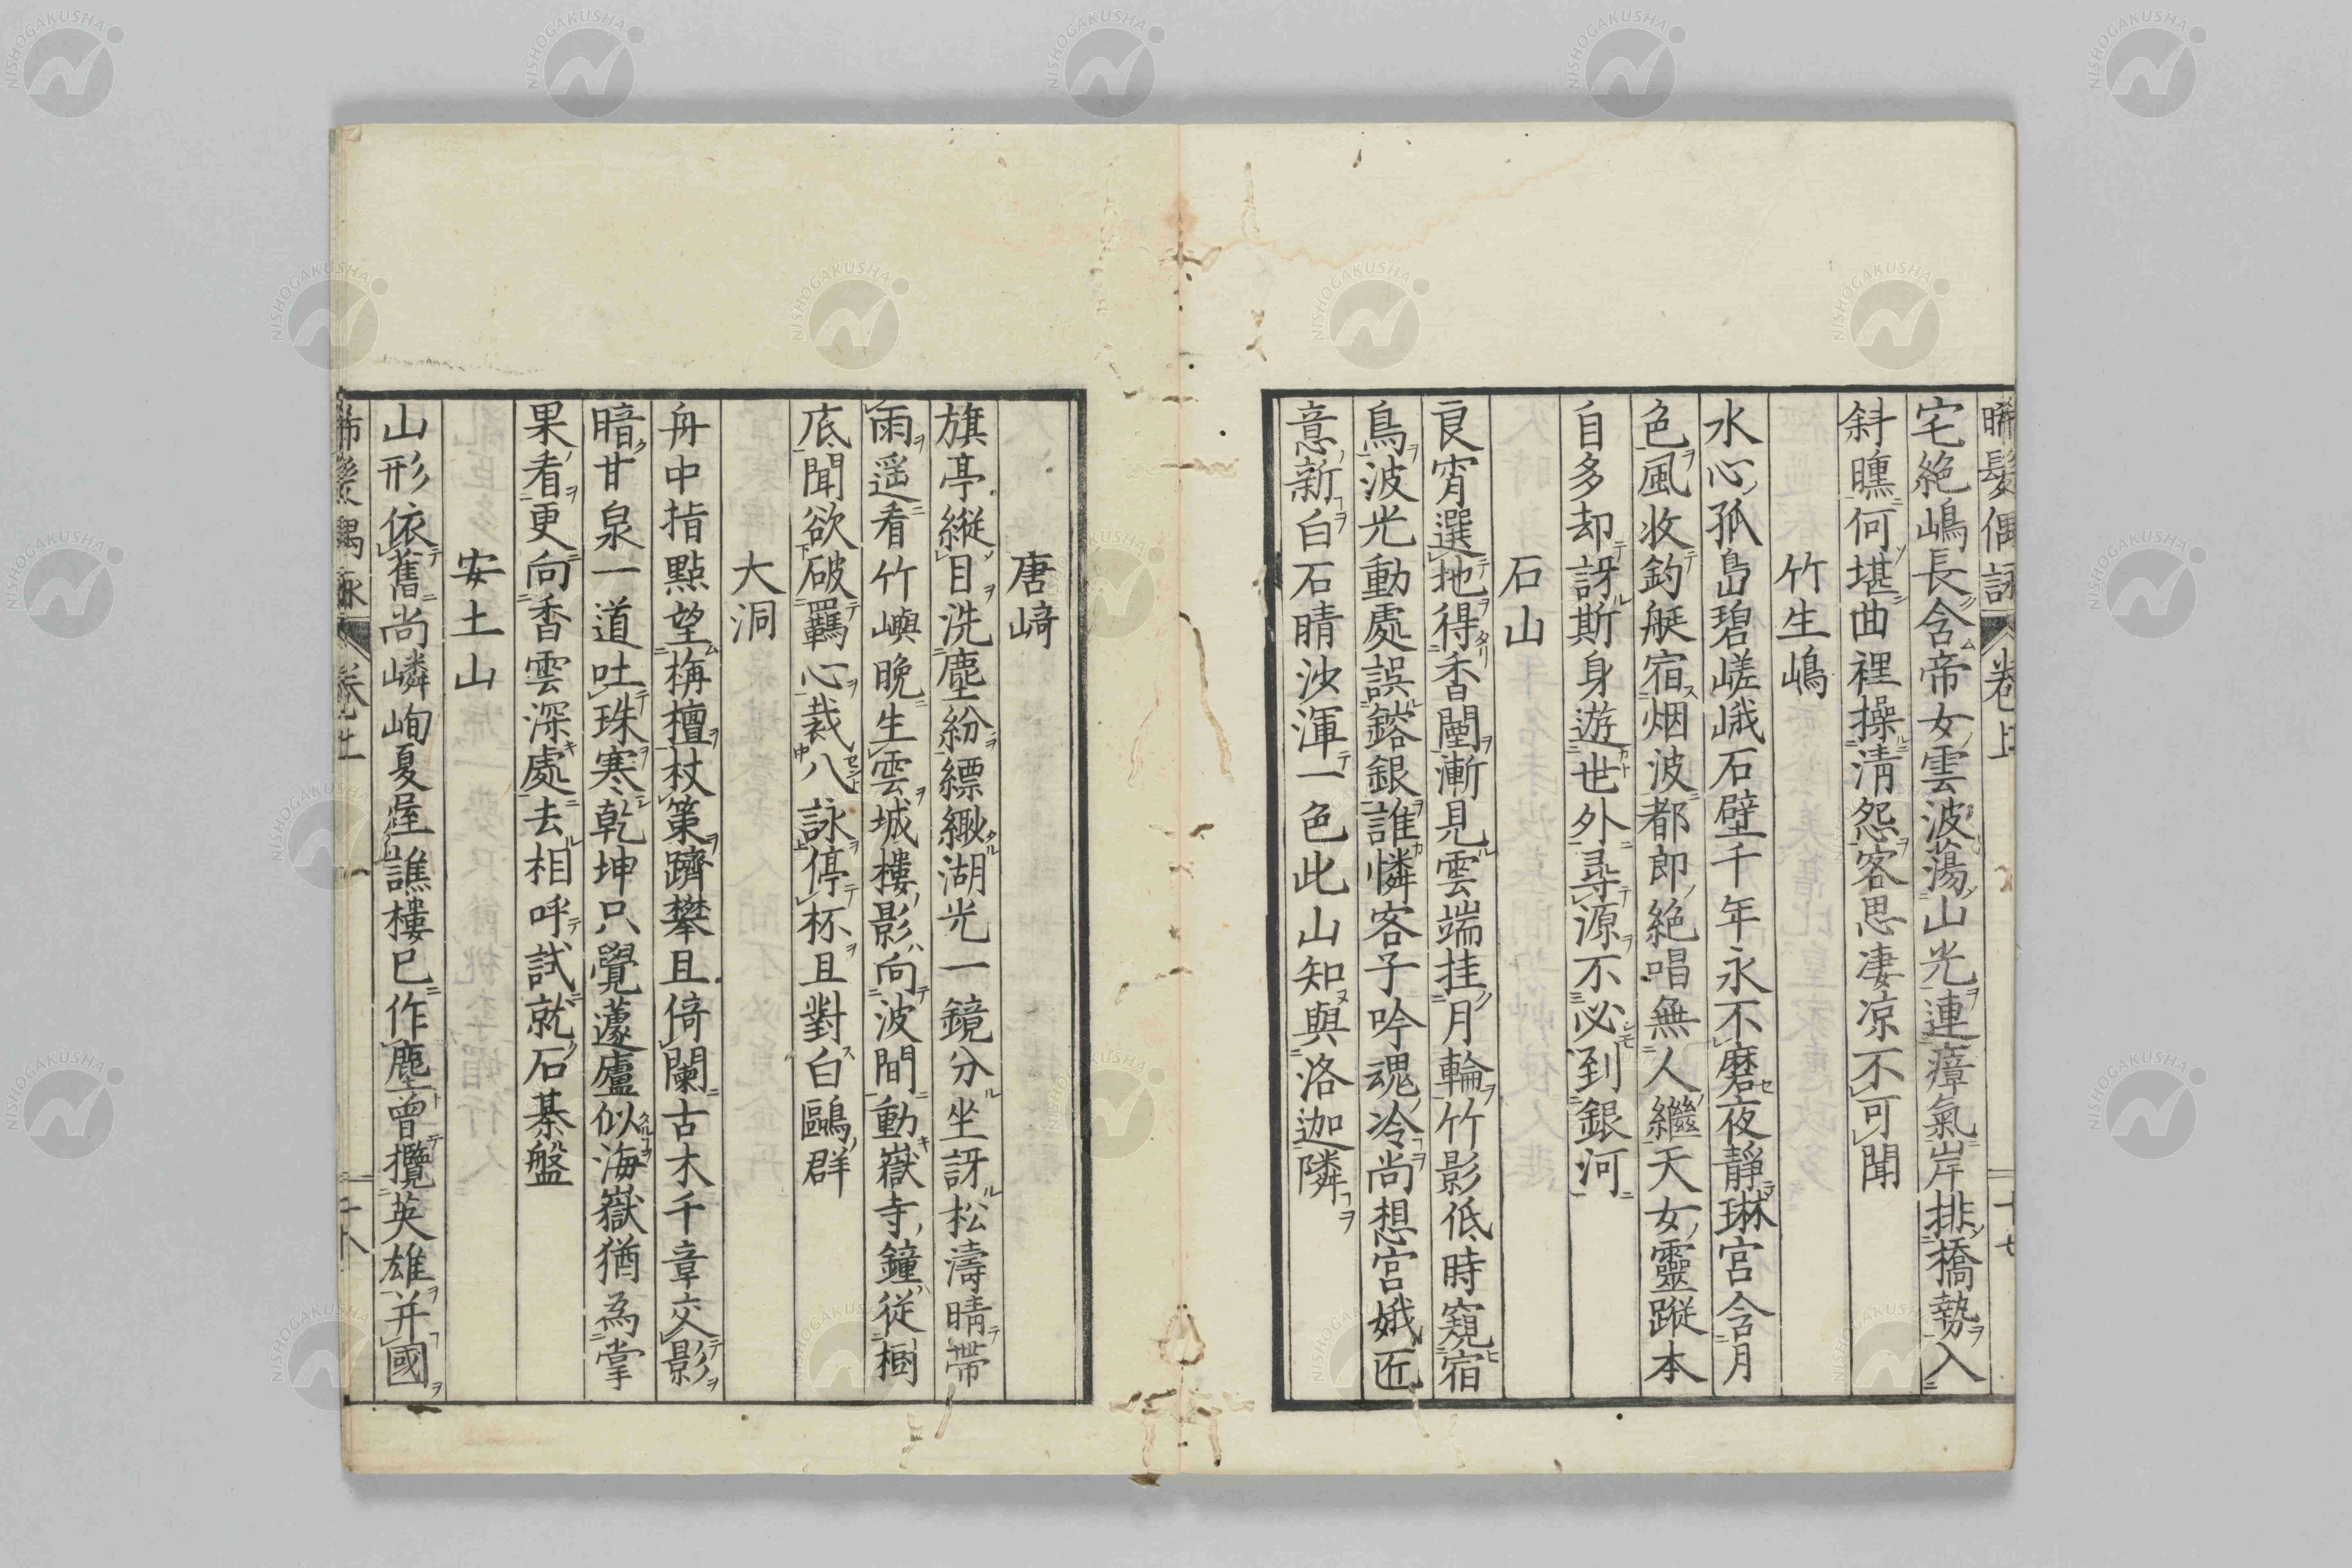 晞髮偶詠 卷上 十七
宅絶嶋長含帝女雲波蕩山光連瘴氣岸排橋勢入
斜曛何堪曲裡操清怨客思凄凉不可聞
竹生嶋
水心孤島碧嵯峨石壁千年永不磨夜靜琳宮含月
色風收釣艇宿烟波都郎絶唱無人繼天女靈蹤本
自多却訝斯身遊世外尋源不必到銀河
石山
良宵選地得香闉漸見雲端挂月輪竹影低時窺宿
鳥波光動處誤鎔銀誰憐客子吟魂冷尚想宮娥匠
意新白石晴沙渾一色此山知與洛迦隣
唐﨑
旗亭縱目洗塵紛縹緲湖光一鏡分坐訝松濤晴帶
雨遥看竹嶼晩生雲城樓影向波間動嶽寺鐘從樹
底聞欲破羈心裁八詠停杯且對白鷗群
大洞
舟中指點望栴檀杖策躋攀且倚闌古木千章交影
暗甘泉一道吐珠寒乾坤只覺蘧廬似海嶽猶為掌
果看更向香雲深處去相呼試就石棊盤
安土山
山形依舊尚嶙峋夏屋譙樓已作塵曾攬英雄并國
NISHOGAKUSHA